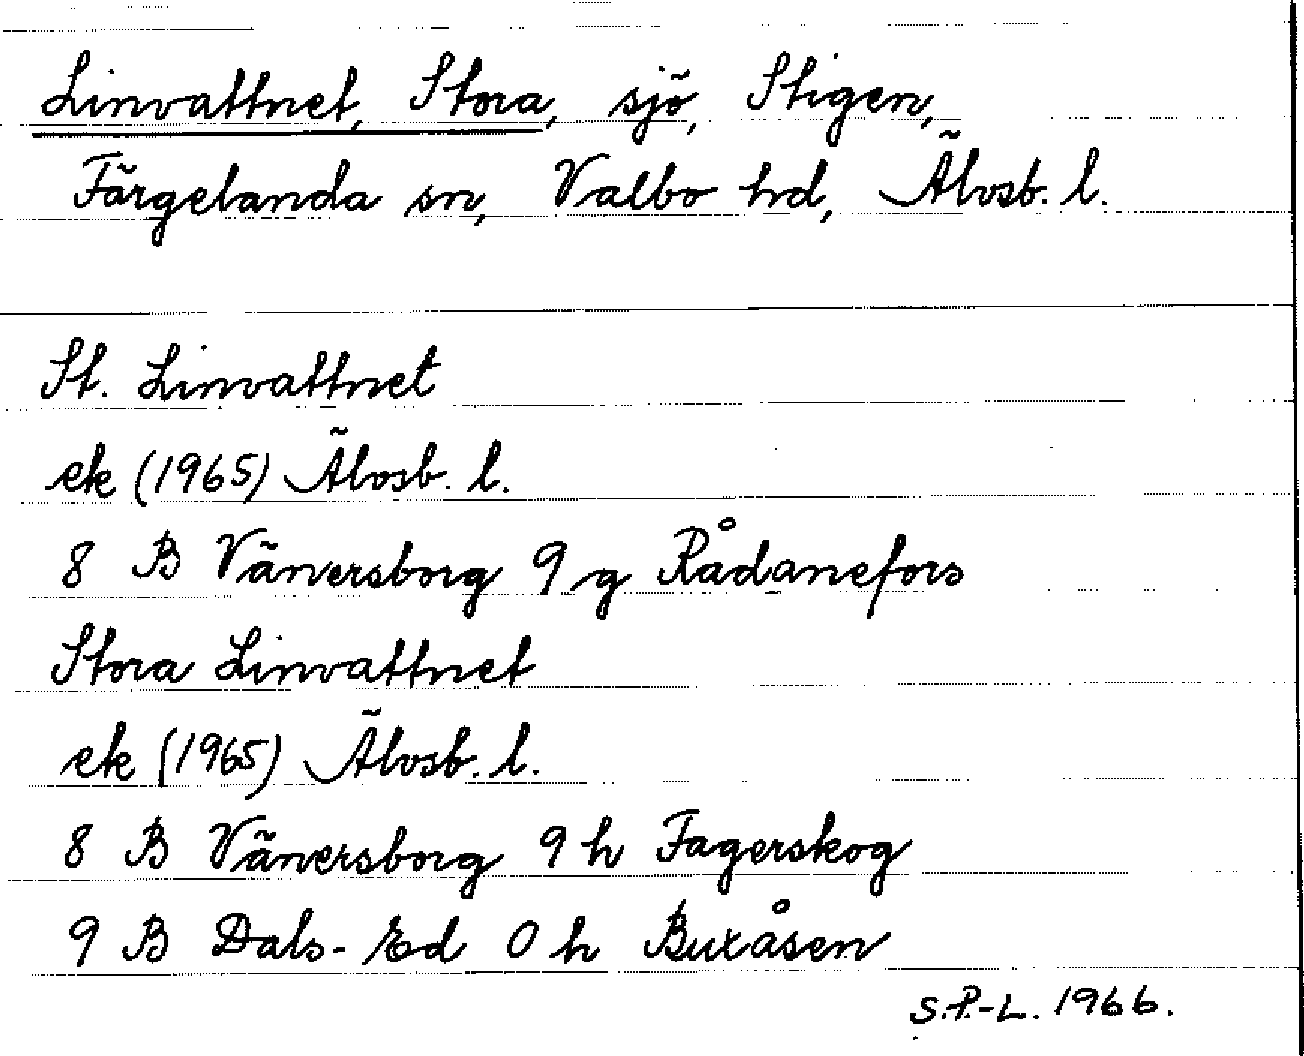 Linvattnet, Stora, sjö, Stigen,
Färgelanda sn, Valbo hd, Älvsb. l.
St. Linvattnet
ek (1965) Älvsb. l.
8 B Vänersborg 9 g Rådanefors
Stora Linvattnet
ek (1965) Älvsb. l.
8 B Vänersborg 9 h Fagerskog
9 B Dals-Ed 0 h Buxåsen
S.P.-L. 1966.